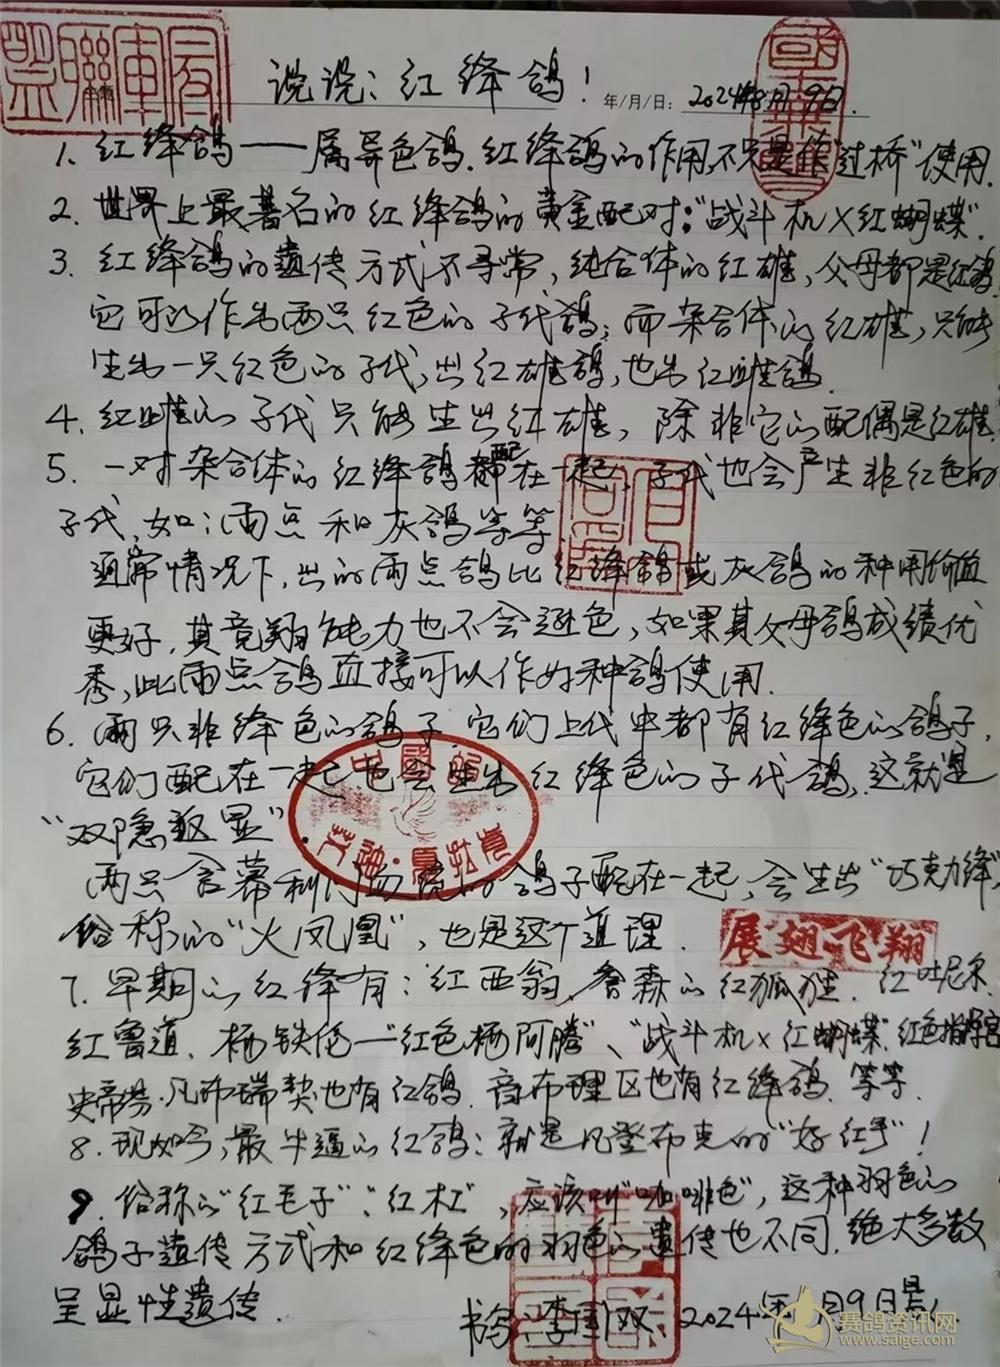 说说：红绛鸽！
年/月/日：2024年8月9日.
1. 红绛鸽——属异色鸽.红绛鸽的作用,不只是作"过桥"使用.
2. 世界上最著名的红绛鸽的黄金配对："战斗机×红蝴蝶".
3. 红绛鸽的遗传方式不寻常,纯合体的红雄,父母都是红鸽
它可以作出两只红色的子代鸽;而杂合体的红雄,只能
生出一只红色的子代,出红雄鸽,也出红雌鸽.
4. 红雌的子代只能生出红雄,除非它的配偶是红雄.
5. 一对杂合体的红绛鸽都配在一起,子代也会产生非红色的
子代,如：雨点和灰鸽等等
通常情况下,出的雨点鸽比红绛鸽或灰鸽的种用价值
更好,其竞翔能力也不会逊色,如果其父母鸽成绩优
秀,此雨点鸽直接可以作好种鸽使用.
6. 两只非绛色的鸽子,它们上代中都有红绛色的鸽子,
它们配在一起也会生出红绛色的子代鸽,这就是
"双隐返显".
两只含幕利门血统的鸽子配在一起,会生出"巧克力绛"
俗称的"火凤凰",也是这个道理.
展翅飞翔
7. 早期的红绛有：红西翁、詹森的红狐狸.红吐尼尔.
红鲁道、杨铁伦—"红色杨阿腾"、"战斗机×红蝴蝶".红色指挥官
史蒂芬·凡布瑞契也有红鸽.音布理区也有红绛鸽.等等.
8. 现如今,最牛逼的红鸽：就是凡登布克的"好红号"！
9. 俗称的"红毛子"、"红杠",应该叫"咖啡色",这种羽色的
鸽子遗传方式和红绛色的羽色的遗传也不同.绝大多数
呈显性遗传.
书写：李国双、2024年8月9日
赛鸽资讯网
www.saige.com